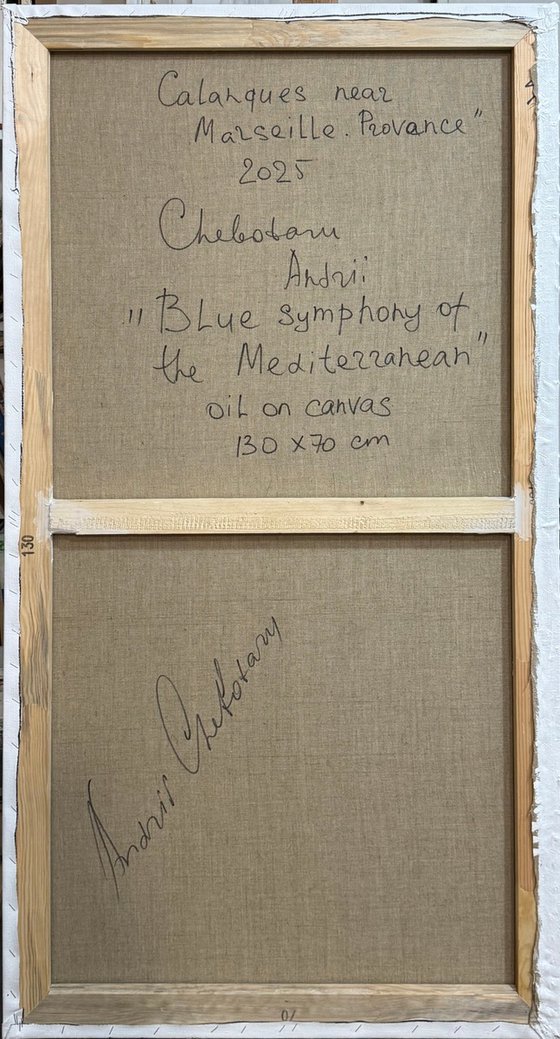 Calanques near
Marseille. Provance"
2025
Chebotaru
Andrii
"BLue symphony of
the Mediterranean"
oiL on canvas
130 x70 cm
130
Andrii Chebotaru